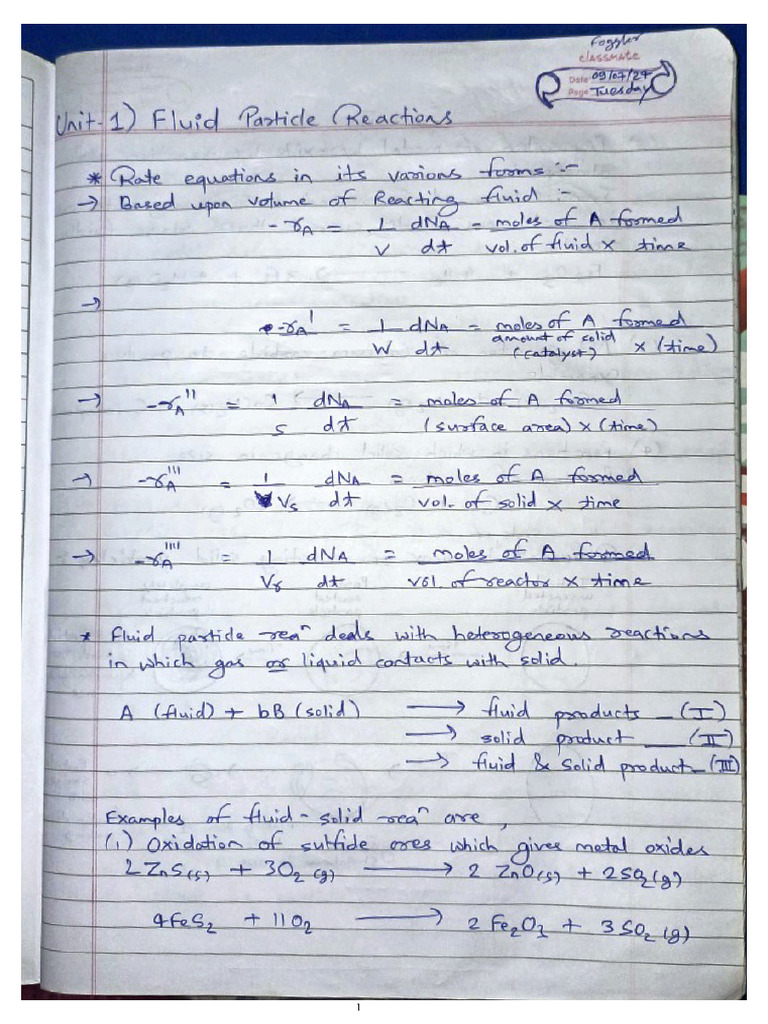 Foggler
classmate
Date 09/07/24
Page Tuesday
Unit-1) Fluid Particle Reactions
* Rate equations in its various forms :-
→ Based upon volume of Reacting fluid :-
-rA = 1/V dNA/dt = moles of A formed / vol. of fluid × time
→
-rA' = 1/W dNA/dt = moles of A formed / amount of solid (catalyst) × (time)
→ -rA'' = 1/S dNA/dt = moles of A formed / (surface area) × (time)
→ -rA''' = 1/Vs dNA/dt = moles of A formed / vol. of solid × time
→ -rA'''' = 1/Vr dNA/dt = moles of A formed / vol. of reactor × time
* Fluid particle reaⁿ deals with heterogeneous reactions
in which gas or liquid contacts with solid.
A (fluid) + bB (solid) → fluid products _ (I)
→ solid product __ (II)
→ fluid & solid product _ (III)
Examples of fluid-solid reaⁿ are,
(1) Oxidation of sulfide ores which gives metal oxides
2 ZnS(s) + 3O2 (g) → 2 ZnO(s) + 2SO2(g)
4FeS2 + 11O2 → 2 Fe2O3 + 3SO2(g)
1